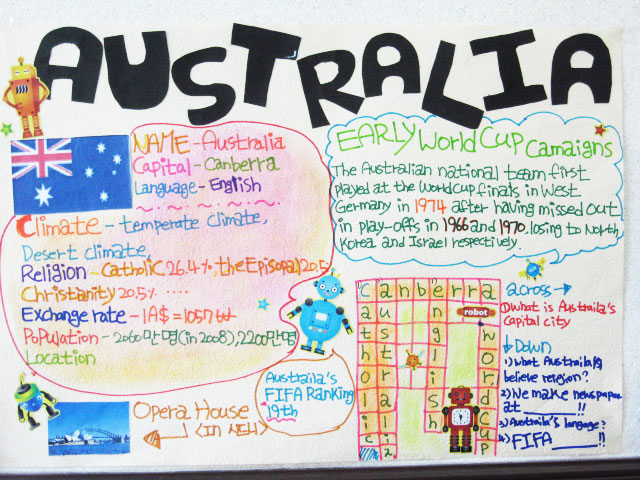 AUSTRALIA
NAME - Australia
Capital - Canberra
Language - English
Climate - temperate climate,
Desert climate
Religion - Catholic 26.4%, the Episopal 20.5
Christianity 20.5% ....
Exchange rate - 1A$ = 1057₩
Population - 2060만명(in 2008), 2200만명
Location
Opera House
<in 시드니>
Austraila's
FIFA Ranking
19th
EARLY World Cup Camaigns
The Australian national team first
played at the World cup finals in West
Germany in 1974 after having missed out
in play-offs in 1966 and 1970, losing to North
Korea and Israel respectively.
canberra
catholic
australia
english
wordcup
robot
across →
①What is Austraila's
capital city
↓ Down
1) What Austraila
believe reigion?
2) We make news paper
at ______!!
3) Austraila's language?
4) FIFA ______!!